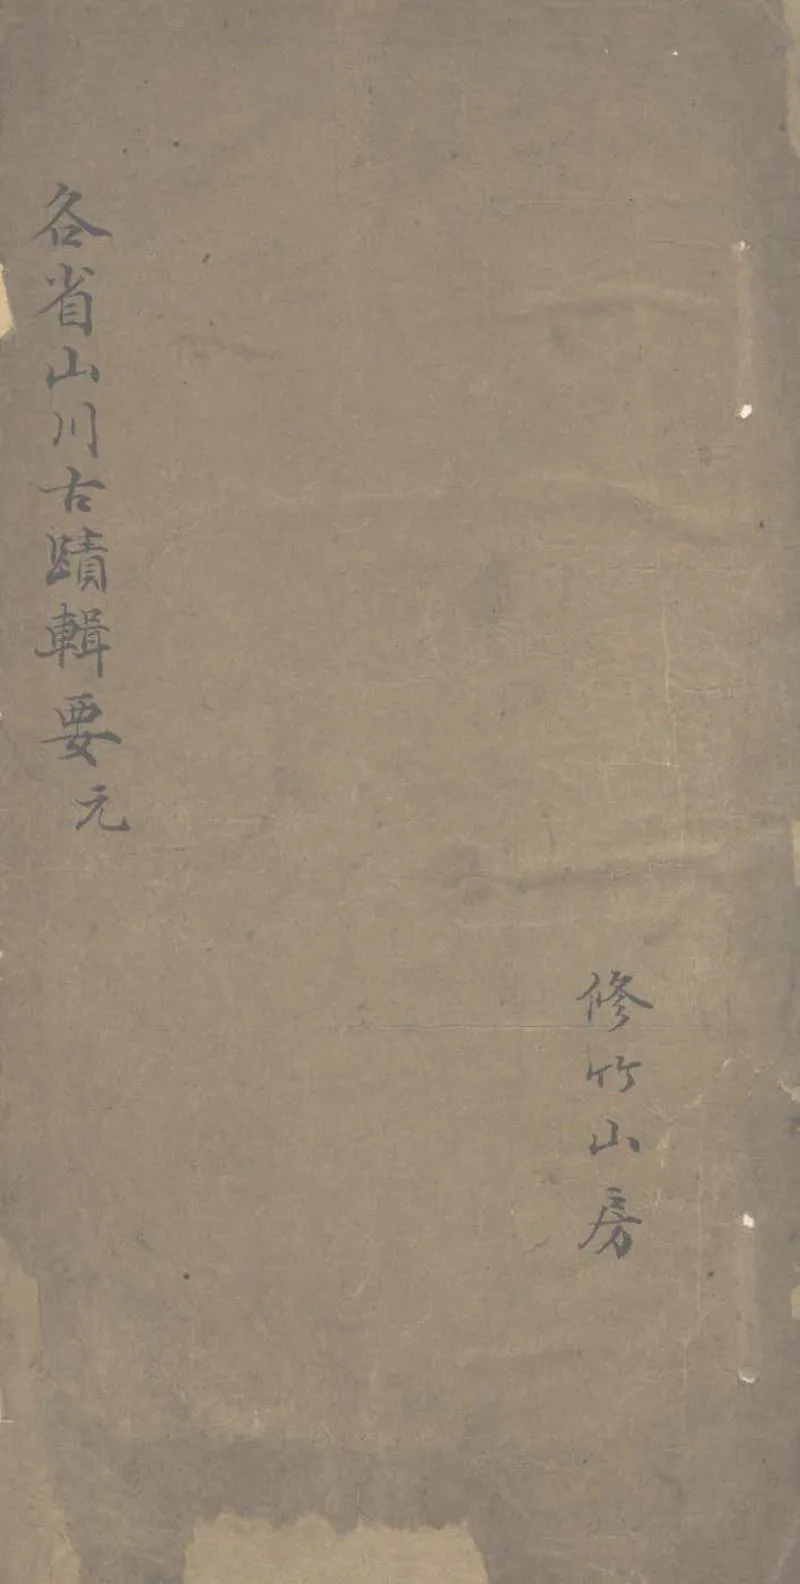 修竹山房
各省山川古蹟輯要元